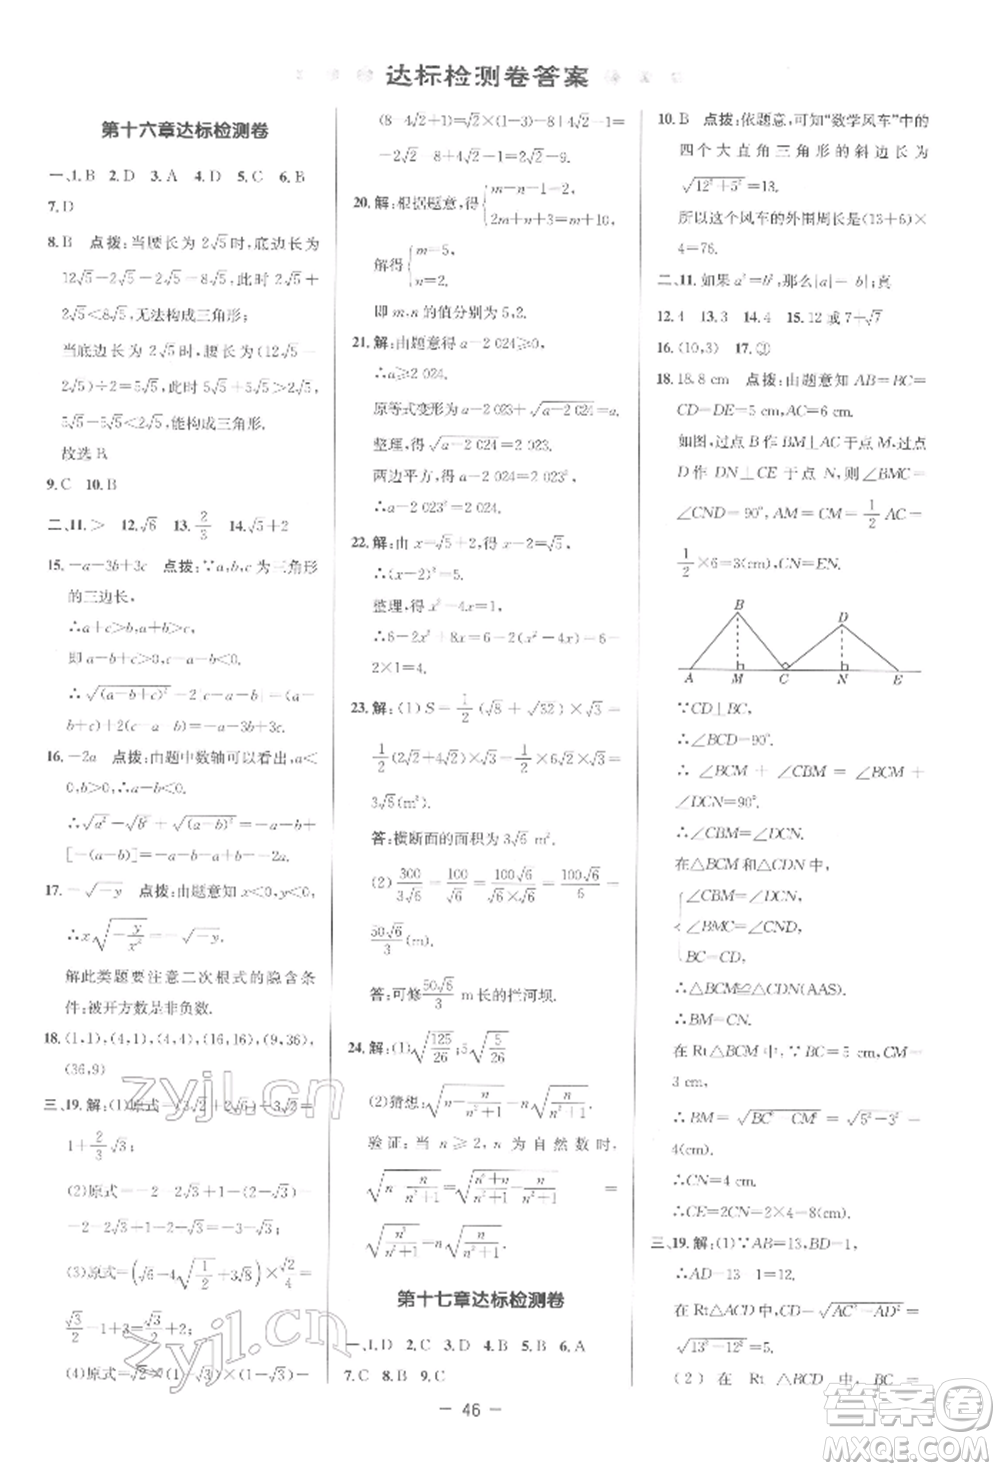 达标检测卷答案
第十六章达标检测卷
一、1.B 2.D 3.A 4.D 5.C 6.B
7.D
8.B 点拨:当腰长为2√5时,底边长为
12√5-2√5-2√5=8√5,此时2√5+
2√5<8√5,无法构成三角形;
当底边长为2√5时,腰长为(12√5-
2√5)÷2=5√5,此时5√5+5√5>2√5,
5√5-5√5<2√5,能构成三角形.
故选B.
9.C 10.B
二、11.> 12.√6 13.2/3 14.√5+2
15.-a-3b+3c 点拨:∵a,b,c为三角形
的三边长,
∴a+c>b,a+b>c,
即a-b+c>0,c-a-b<0.
∴√(a-b+c)²-2|c-a-b|=(a-
b+c)+2(c-a-b)=-a-3b+3c.
16.-2a 点拨:由题中数轴可以看出,a<
0,b>0,∴a-b<0.
∴√a²-√b²+√(a-b)²=-a-b+
[-(a-b)]=-a-b-a+b=-2a.
17.-√-y 点拨:由题意知x<0,y<0,
∴x√(-y/x²)=-√-y.
解此类题要注意二次根式的隐含条
件:被开方数是非负数.
18.(1,1),(4,1),(4,4),(16,16),(9,36),
(36,9)
三、19.解:(1)原式=3√2+2√6-3√2-
1+2/3√3
(2)原式=-2-2√3+1-
=-2√3+1-3-2√3
(3)原式=(√6-4√(1/2)+3√8)×√2/4=
√3/2-1+3=√3/2+2.
(8-4√2+1)=√2×(1-3)-8+4√2-1=
-2√2-8+4√2-1=2√2-9.
20.解:根据题意,得{m-n-1=2,
2m+n+3=m+10,
解得{m=5,
n=2.
即m,n的值分别为5,2.
21.解:由题意得a-2 024≥0,
∴a≥2 024.
原等式变形为a-2 023+√a-2 024=a.
整理,得√a-2 024=2 023,
两边平方,得a-2 024=2 023²,
∴a-2 023²=2 024.
22.解:由x=√5+2,得x-2=√5,
∴(x-2)²=5.
整理,得x²-4x=1.
∴6-2x²+8x=6-2(x²-4x)=6-
2×1=4.
23.解:(1)S=1/2(√8+√32)×√3=
1/2(2√2+4√2)×√3=1/2×6√2×√3=
3√6(m²)
答:横断面的面积为3√6 m².
(2)300/3√6=100/√6=100√6/√6×√6=100√6/6=
50√6/3(m).
答:可修50√6/3 m长的拦河坝.
24.解:(1)√(125/26);5√(5/26)
(2)猜想:√(n-n/(n²+1))=n√(n/(n²+1)).
验证:当n≥2,n为自然数时,
√(n-n/(n²+1))=√((n³+n)/(n²+1)-n/(n²+1))=
√(n³/(n²+1))=n√(n/(n²+1)).
第十七章达标检测卷
一、1.D 2.C 3.B 4.B 5.B 6.A
7.C 8.B 9.C
10.B 点拨:依题意,可知“数学风车”中的
四个大直角三角形的斜边长为
√12²+5²=13.
所以这个风车的外围周长是(13+6)×
4=76.
二、11.如果a²=b²,那么|a|=|b|;真
12.4 13.3 14.4 15.12或7+√7
16.(10,3) 17.③
18.18.8 cm 点拨:由题意知AB=BC=
CD=DE=5 cm,AC=6 cm.
如图,过点B作BM⊥AC于点M,过点
D作DN⊥CE于点N,则∠BMC=
∠CND=90°,AM=CM=1/2AC=
1/2×6=3(cm),CN=EN.
B D
A M C N E
∵CD⊥BC,
∴∠BCD=90°.
∴∠BCM+∠CBM=∠BCM+
∠DCN=90°.
∴∠CBM=∠DCN.
在△BCM和△CDN中,
∠CBM=∠DCN,
∠BMC=∠CND,
BC=CD,
∴△BCM≌△CDN(AAS).
∴BM=CN.
在Rt△BCM中,∵BC=5 cm,CM=
3 cm,
∴BM=√BC²-CM²=√5²-3²=
4(cm).
∴CN=4 cm.
∴CE=2CN=2×4=8(cm).
三、19.解:(1)∵AB=13,BD=1,
∴AD=13-1=12.
在Rt△ACD中,CD=√AC²-AD²=
√13²-12²=5.
(2)在Rt△BCD中,BC=
- 46 -
zyjl.cn
zyjl.cn
答案圈
MXQE.COM